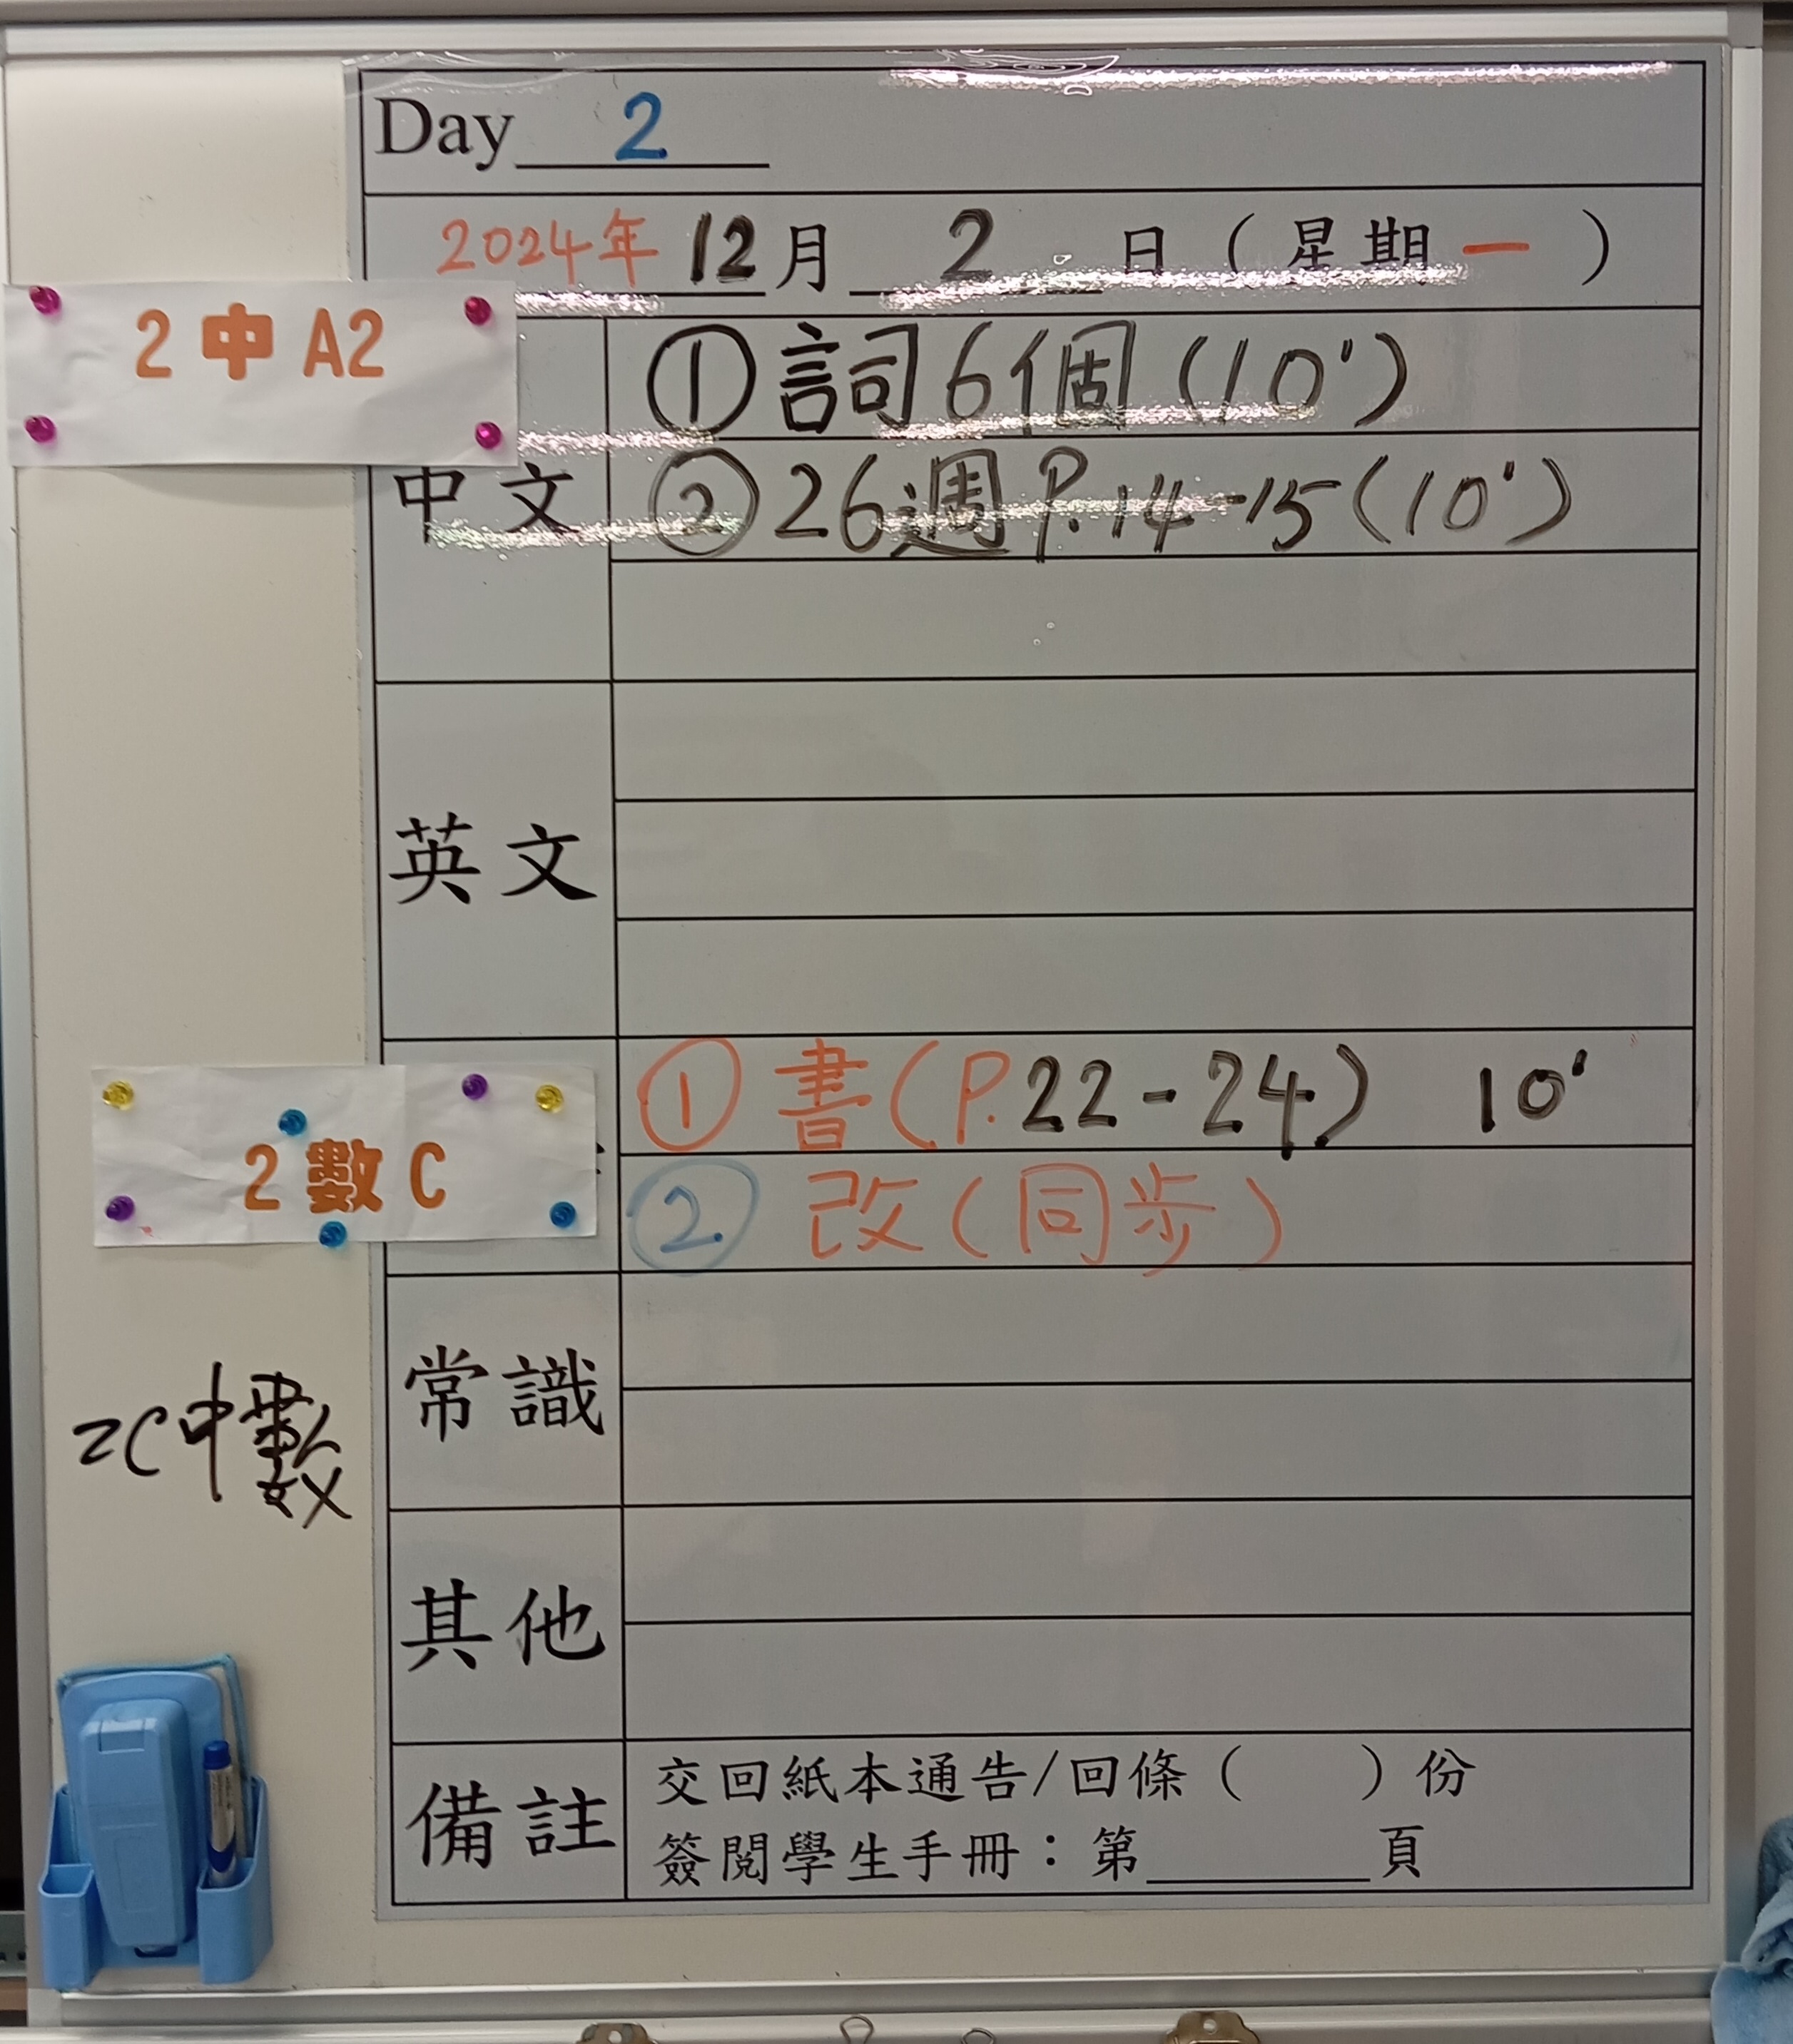 Day 2
2024年 12月 2 日（星期一）
2 中 A2
中文
① 詞6個(10')
② 26週P.14-15(10')
英文
2 數 C
① 書(P.22-24) 10'
② 改(同步)
常識
2C中數
其他
備註
交回紙本通告/回條（ ）份
簽閱學生手冊：第 頁